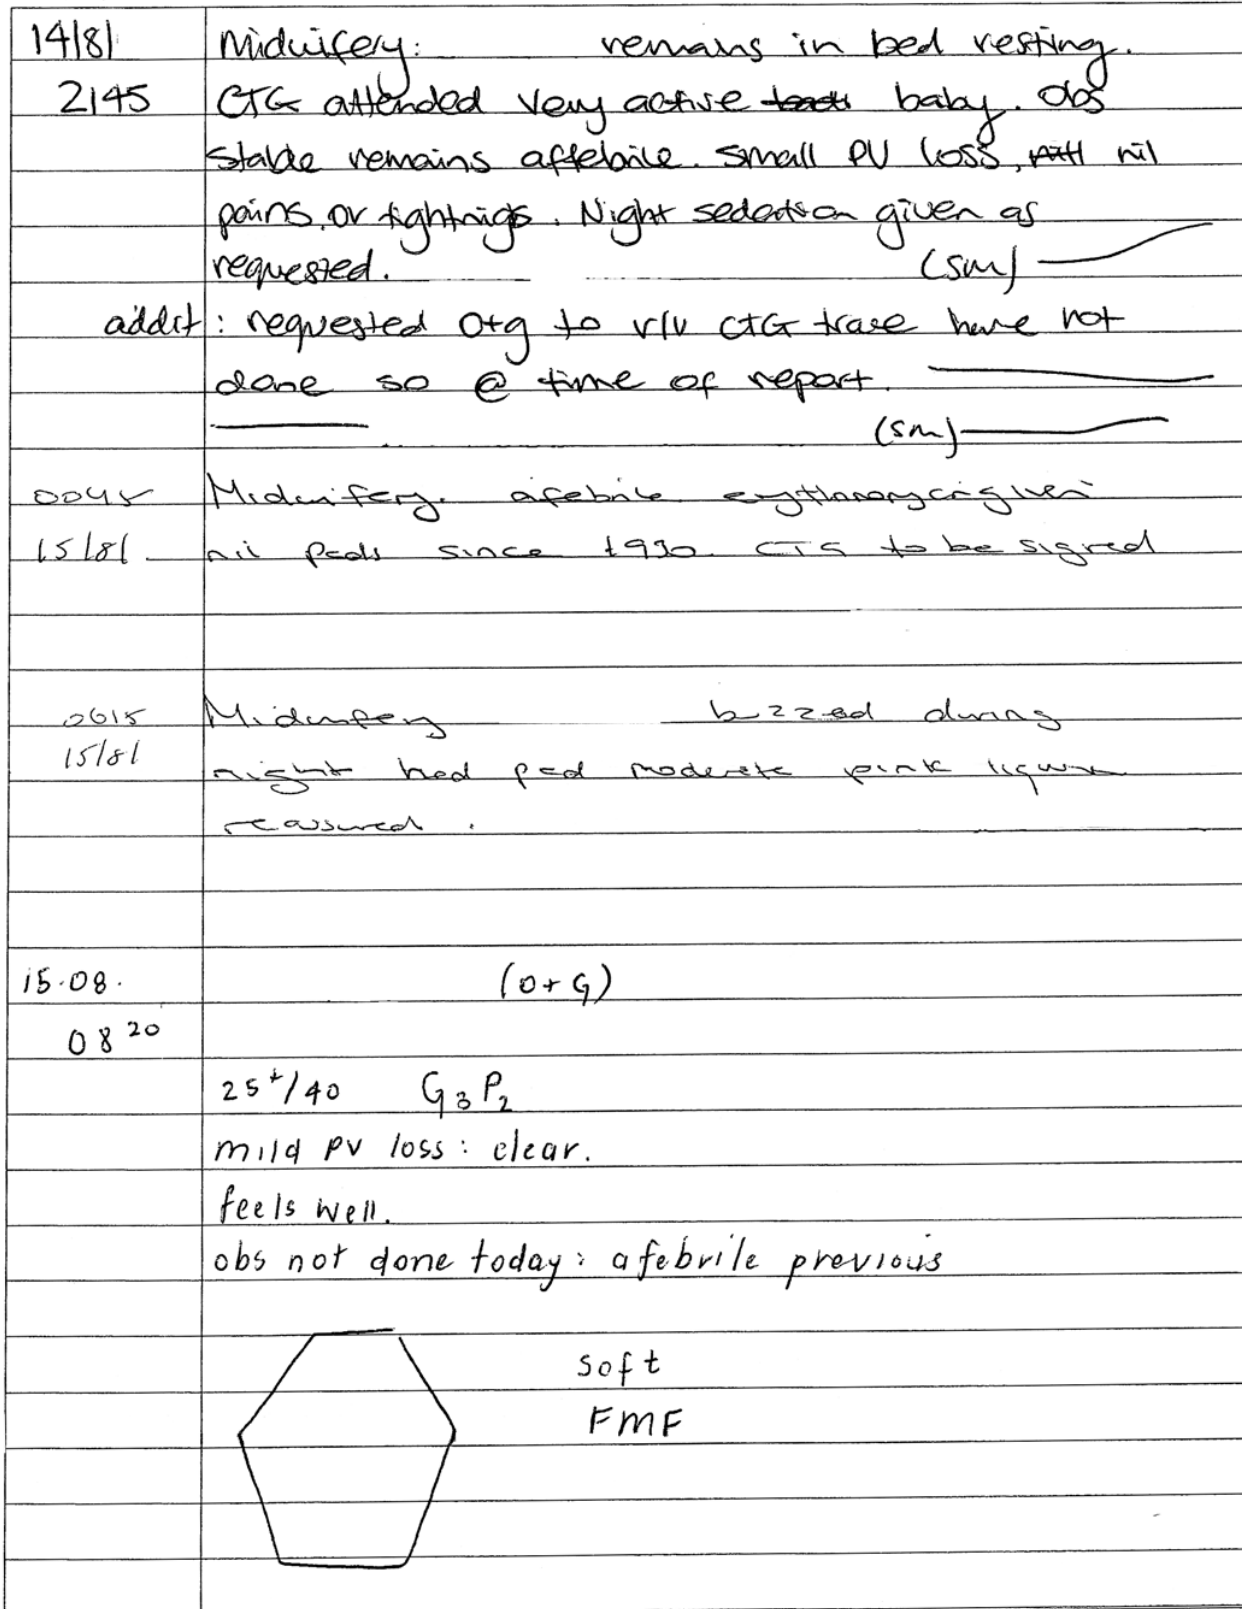 14/8/ Midwifery: remains in bed resting.
2145 CTG attended very active baby. Obs
stable remains affebrile. small PV loss, nil
pains, or tightnigs. Night sedation given as
requested. (SM)
addit: requested O+g to r/v CTG trace have not
done so @ time of report.
(SM)
0045 Midwifery. afebrile erythromycin given
15/8/ nil pads since 1930. CTG to be signed
0615 Midwifery buzzed during
15/8/ night had pad moderate pink liquor
reassured.
15.08. (O+G)
08 20
25+/40 G3P2
mild PV loss: clear.
feels well.
obs not done today: afebrile previous
soft
FMF